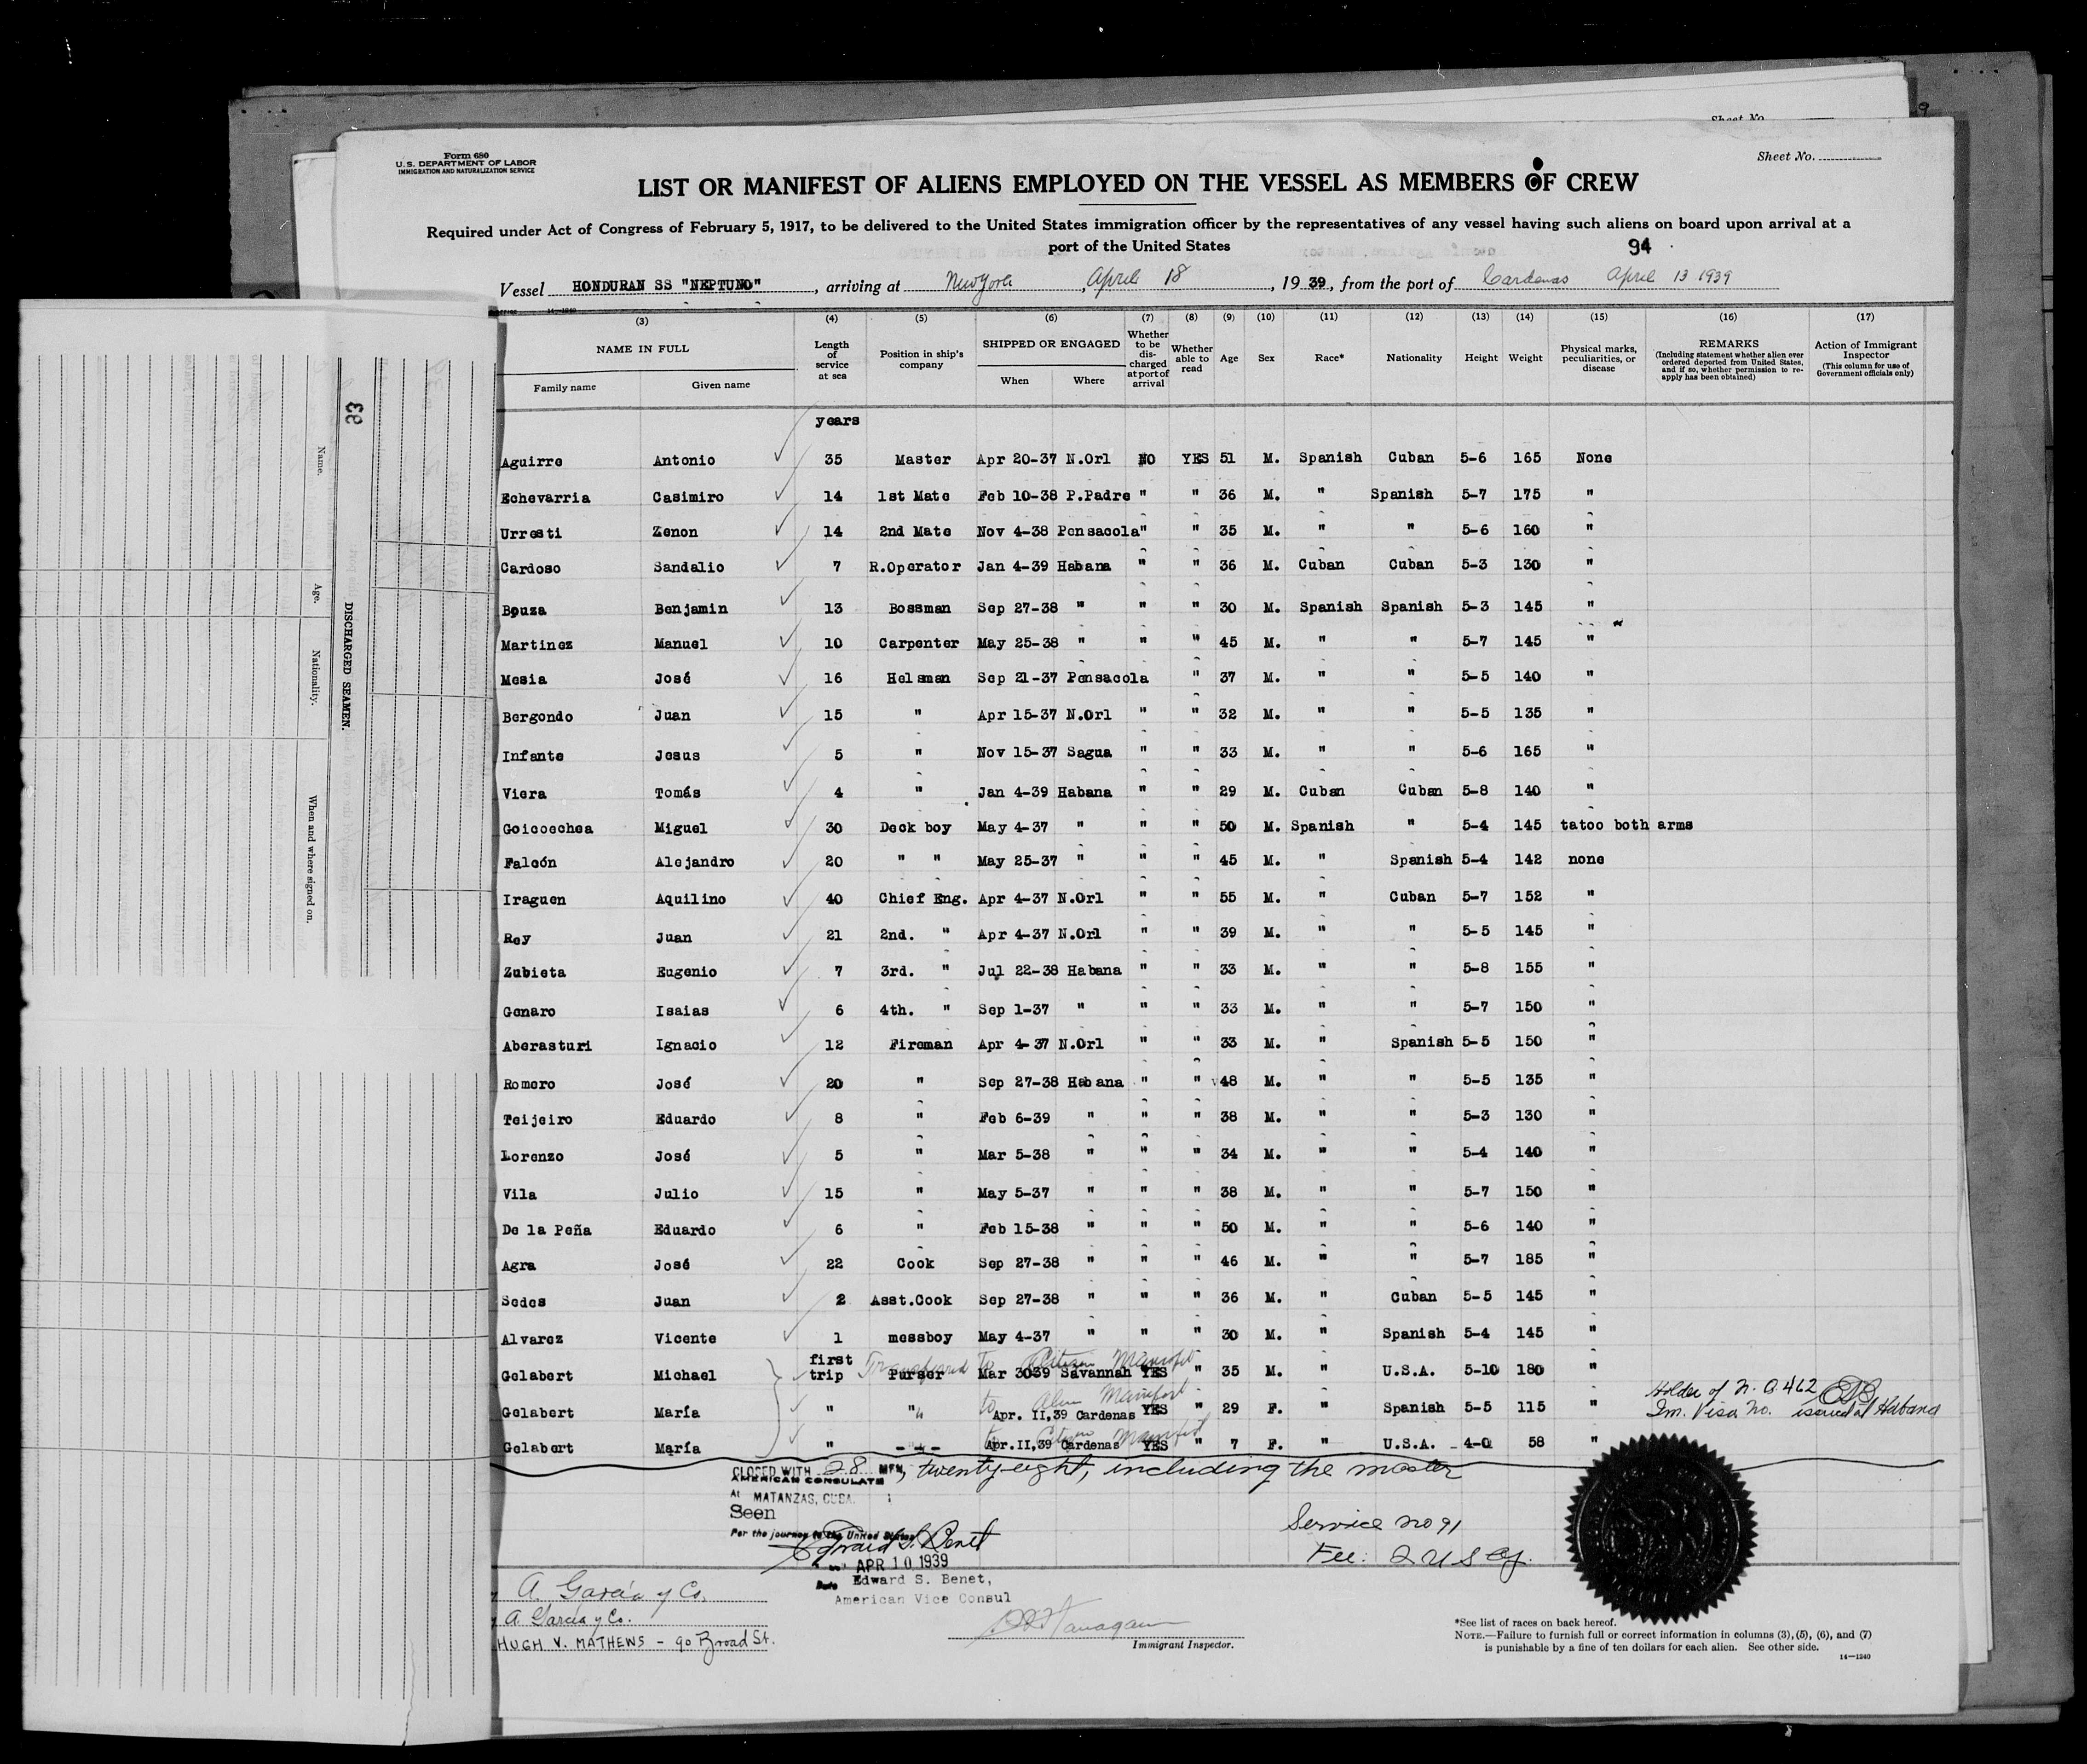 Sheet No.
9
Form 680
U.S. DEPARTMENT OF LABOR
IMMIGRATION AND NATURALIZATION SERVICE
Sheet No.
LIST OR MANIFEST OF ALIENS EMPLOYED ON THE VESSEL AS MEMBERS OF CREW
Required under Act of Congress of February 5, 1917, to be delivered to the United States immigration officer by the representatives of any vessel having such aliens on board upon arrival at a
port of the United States
94
Vessel HONDURAN SS "NEPTUNO", arriving at New York, April 18, 1939, from the port of Cardenas April 13 1939
14-1240
(3) (4) (5) (6) (7) (8) (9) (10) (11) (12) (13) (14) (15) (16) (17)
NAME IN FULL
Family name Given name
Length of service at sea
Position in ship's company
SHIPPED OR ENGAGED
When Where
Whether to be discharged at port of arrival
Whether able to read
Age Sex Race* Nationality Height Weight
Physical marks, peculiarities, or disease
REMARKS
(Including statement whether alien ever ordered deported from United States, and if so, whether permission to re-apply has been obtained)
Action of Immigrant Inspector
(This column for use of Government officials only)
years
Aguirre Antonio 35 Master Apr 20-37 N.Orl NO YES 51 M. Spanish Cuban 5-6 165 None
Echevarria Casimiro 14 1st Mate Feb 10-38 P.Padre " " 36 M. " Spanish 5-7 175 "
Urresti Zenon 14 2nd Mate Nov 4-38 Pensacola " " 35 M. " " 5-6 160 "
Cardoso Sandalio 7 R.Operator Jan 4-39 Habana " " 36 M. Cuban Cuban 5-3 130 "
Bouza Benjamin 13 Bossman Sep 27-38 " " " 30 M. Spanish Spanish 5-3 145 "
Martinez Manuel 10 Carpenter May 25-38 " " " 45 M. " " 5-7 145 "
Mesia José 16 Helsman Sep 21-37 Pensacola " 37 M. " " 5-5 140 "
Bergondo Juan 15 " Apr 15-37 N.Orl " " 32 M. " " 5-5 135 "
Infante Jesus 5 " Nov 15-37 Sagua " " 33 M. " " 5-6 165 "
Viera Tomás 4 " Jan 4-39 Habana " " 29 M. Cuban Cuban 5-8 140 "
Goicoechea Miguel 30 Deck boy May 4-37 " " " 50 M. Spanish " 5-4 145 tatoo both arms
Falcón Alejandro 20 " " May 25-37 " " " 45 M. " Spanish 5-4 142 none
Iraguen Aquilino 40 Chief Eng. Apr 4-37 N.Orl " " 55 M. " Cuban 5-7 152 "
Rey Juan 21 2nd. " Apr 4-37 N.Orl " " 39 M. " " 5-5 145 "
Zubieta Eugenio 7 3rd. " Jul 22-38 Habana " " 33 M. " " 5-8 155 "
Genaro Isaias 6 4th. " Sep 1-37 " " " 33 M. " " 5-7 150 "
Aberasturi Ignacio 12 Fireman Apr 4-37 N.Orl " " 33 M. " Spanish 5-5 150 "
Romero José 20 " Sep 27-38 Habana " " 48 M. " " 5-5 135 "
Teijeiro Eduardo 8 " Feb 6-39 " " " 38 M. " " 5-3 130 "
Lorenzo José 5 " Mar 5-38 " " " 34 M. " " 5-4 140 "
Vila Julio 15 " May 5-37 " " " 38 M. " " 5-7 150 "
De la Peña Eduardo 6 " Feb 15-38 " " " 50 M. " " 5-6 140 "
Agra José 22 Cook Sep 27-38 " " " 46 M. " " 5-7 185 "
Sedes Juan 2 Asst.Cook Sep 27-38 " " " 36 M. " Cuban 5-5 145 "
Alvarez Vicente 1 messboy May 4-37 " " " 30 M. " Spanish 5-4 145 "
Transferred to Citizen Manifest
Gelabert Michael first trip Purser Mar 3039 Savannah YES " 35 M. " U.S.A. 5-10 180 "
to Alien Manifest
Gelabert María " " Apr. II,39 Cardenas YES " 29 F. " Spanish 5-5 115 " Holder of N. Q. 462
Im. Visa No. issued at Habana
to Citizen Manifest
Gelabert María " -"- Apr.II,39 Cardenas YES " 7 F. " U.S.A. 4-0 58 "
CLOSED WITH 28 MEN, twenty-eight, including the master
AMERICAN CONSULATE
At MATANZAS, CUBA.
Seen
For the journey to the United States
Edward S. Benet
APR 10 1939
Date
Edward S. Benet,
American Vice Consul
Service No 91
Fee: 2 U S Cy.
A. García y Co.
A. García y Co.
HUGH V. MATHEWS - 90 Broad St.
Immigrant Inspector.
*See list of races on back hereof.
NOTE.—Failure to furnish full or correct information in columns (3), (5), (6), and (7)
is punishable by a fine of ten dollars for each alien. See other side.
14-1240
93
DISCHARGED SEAMEN.
Name. Age. Nationality. When and where signed on.